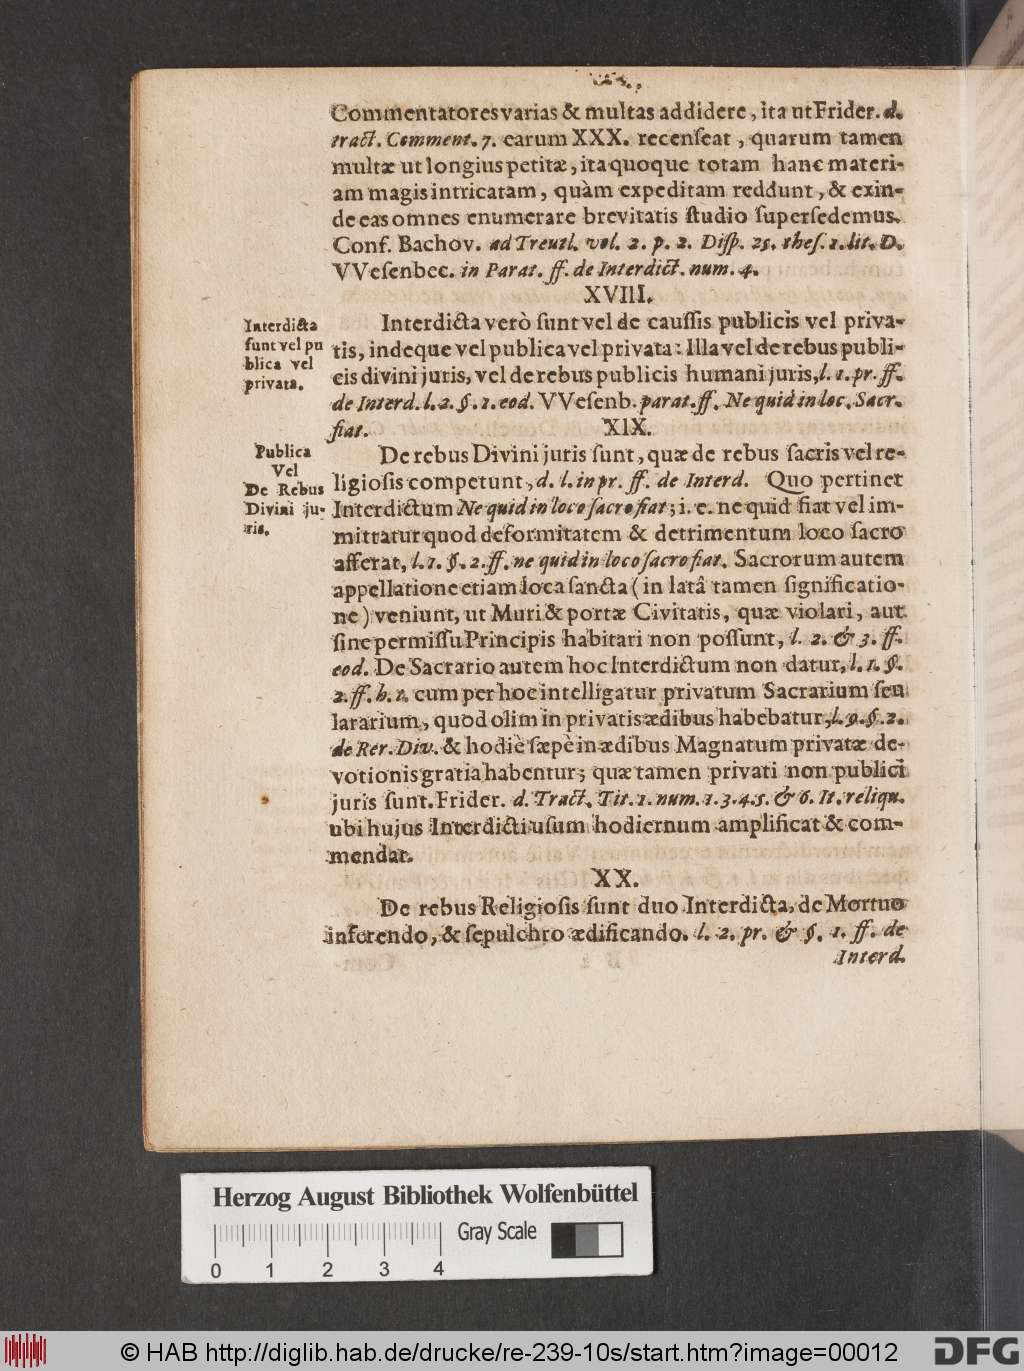 Commentatores varias & multas addidere, ita ut Frider. d.
tract. Comment. 7. earum XXX. recenſeat, quarum tamen
multæ ut longius petitæ, ita quoque totam hanc materi-
am magis intricatam, quàm expeditam reddunt, & exin-
de eas omnes enumerare brevitatis ſtudio ſuperſedemus.
Conf. Bachov. ad Treutl. vol. 2. p. 2. Diſp. 25. theſ. 1. lit. D.
VVeſenbec. in Parat. ff. de Interdict. num. 4.
XVIII.
Interdicta
ſunt vel pu
blica vel
privata.
Interdicta verò ſunt vel de cauſſis publicis vel priva-
tis, indeque vel publica vel privata: Illa vel de rebus publi-
cis divini juris, vel de rebus publicis humani juris, l. 1. pr. ff.
de Interd. l. 2. §. 1. eod. VVeſenb. parat. ff. Ne quid in loc. Sacr.
fiat.
XIX.
Publica
Vel
De Rebus
Divini ju-
ris.
De rebus Divini juris ſunt, quæ de rebus ſacris vel re-
ligioſis competunt, d. l. in pr. ff. de Interd. Quo pertinet
Interdictum Ne quid in loco ſacro fiat; i. e. ne quid fiat vel im-
mittatur quod deformitatem & detrimentum loco ſacro
afferat, l. 1. §. 2. ff. ne quid in loco ſacro fiat. Sacrorum autem
appellatione etiam loca ſancta (in latâ tamen ſignificatio-
ne) veniunt, ut Muri & portæ Civitatis, quæ violari, aut
ſine permiſſu Principis habitari non poſſunt, l. 2. & 3. ff.
eod. De Sacrario autem hoc Interdictum non datur, l. 1. §.
2. ff. h. t. cum per hoc intelligatur privatum Sacrarium ſeu
lararium, quod olim in privatis ædibus habebatur, l. 9. §. 2.
de Rer. Div. & hodiè ſæpè in ædibus Magnatum privatæ de-
votionis gratia habentur; quæ tamen privati non publici
juris ſunt. Frider. d. Tract. Tit. 1. num. 1. 3. 4. 5. & 6. It. reliqu.
ubi hujus Interdicti uſum hodiernum amplificat & com-
mendat.
XX.
De rebus Religioſis ſunt duo Interdicta, de Mortuo
inferendo, & ſepulchro ædificando. l. 2. pr. & §. 1. ff. de
Interd.
Herzog August Bibliothek Wolfenbüttel
Gray Scale
0 1 2 3 4
© HAB http://diglib.hab.de/drucke/re-239-10s/start.htm?image=00012
DFG